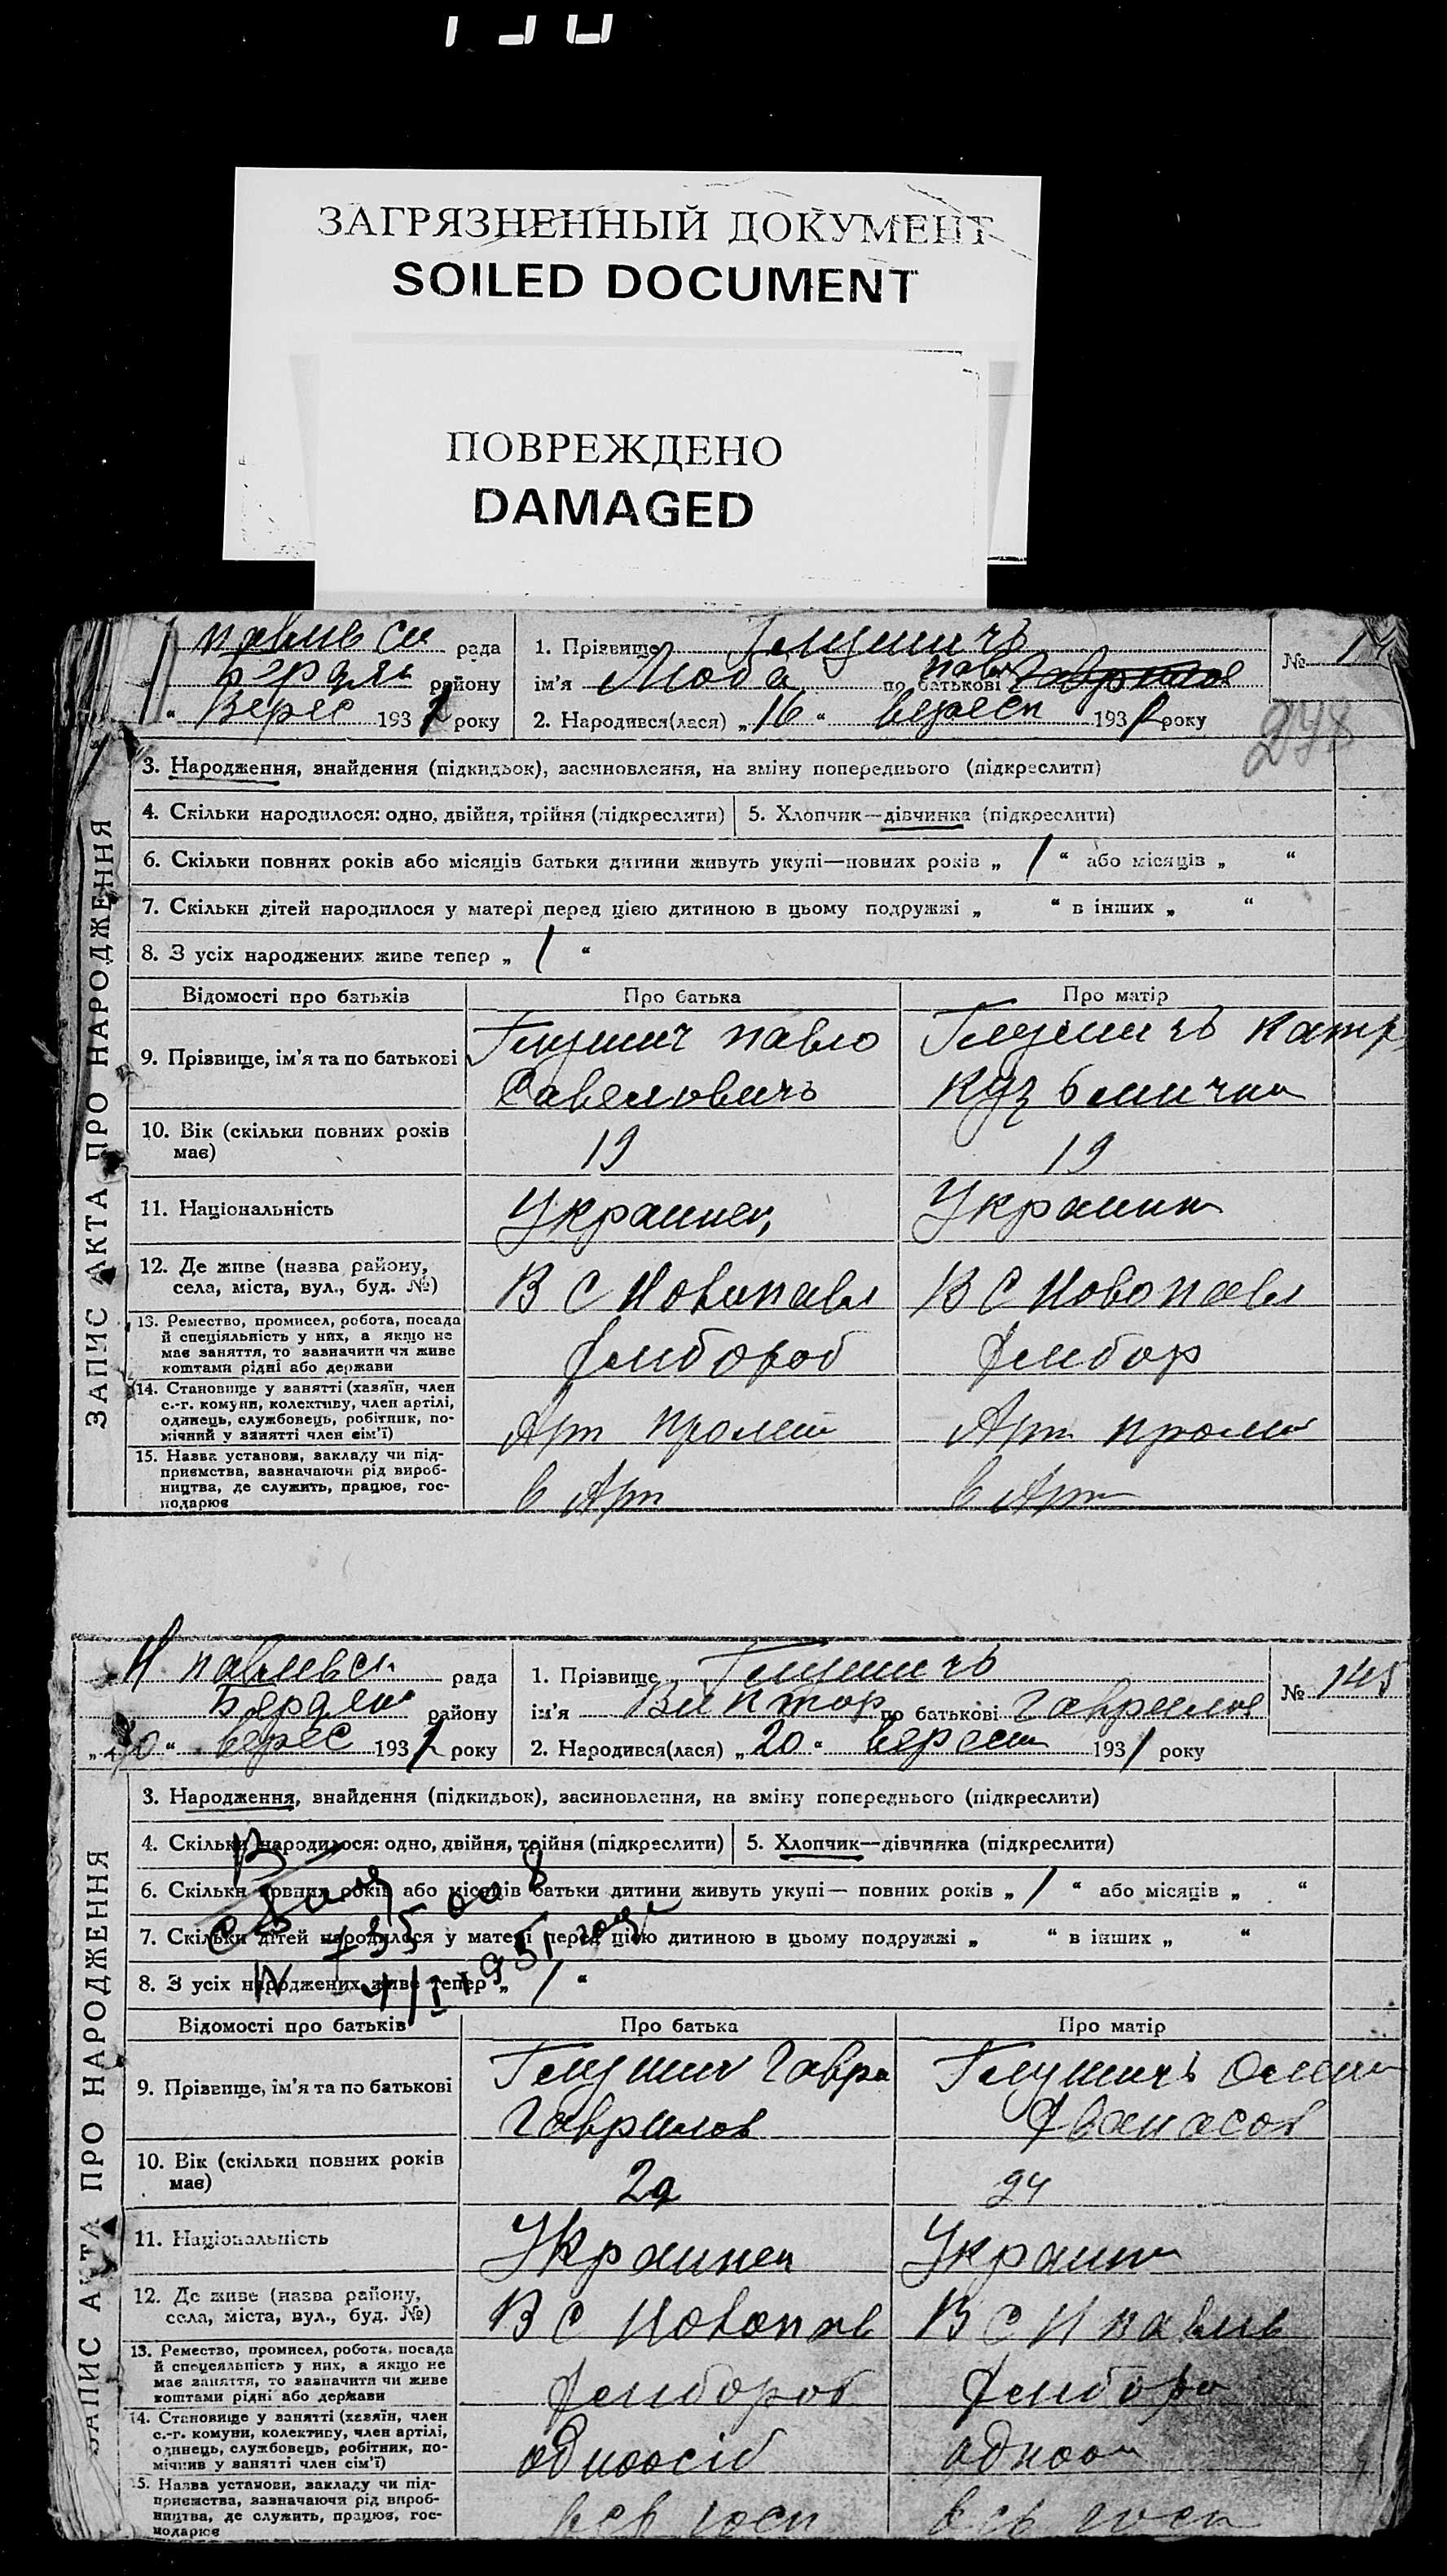 ЗАГРЯЗНЕННЫЙ ДОКУМЕНТ
SOILED DOCUMENT
ПОВРЕЖДЕНО
DAMAGED
ЗАПИС АКТА ПРО НАРОДЖЕННЯ
рада
району
Верес 193 року
1. Прізвище Глушичъ
№ 14
ім'я Люба по батькові
2. Народився(лася) „16“ 193 року
278
3. Народження, знайдення (підкидьок), засиновлення, на зміну попереднього (підкреслити)
4. Скільки народилося: одно, двійня, трійня (підкреслити) 5. Хлопчик—дівчинка (підкреслити)
6. Скільки повних років або місяців батьки дитини живуть укупі—повних років „ 1 “ або місяців „ “
7. Скільки дітей народилося у матері перед цією дитиною в цьому подружжі „ “ в інших „ “
8. З усіх народжених живе тепер „ 1 “
Відомості про батьків Про батька Про матір
9. Прізвище, ім'я та по батькові
Глушич Павло
Савеловичъ
Глушичъ Катр
10. Вік (скільки повних років
має)
19 19
11. Національність
Украинец Украинк
12. Де живе (назва району,
села, міста, вул., буд. №)
В С Новопавл В С Новопавл
13. Ремество, промисел, робота, посада
й спеціяльність у них, а якщо не
має заняття, то зазначити чи живе
коштами рідні або держави
14. Становище у занятті (хазяїн, член
с.-г. комуни, колективу, член артілі,
одинець, службовець, робітник, по-
мічний у занятті член сім'ї)
Арт Пролет Арт Пролет
15. Назва установи, закладу чи під-
приємства, зазначаючи рід вироб-
ництва, де служить, працює, гос-
подарює
в Арт в Арт
ЗАПИС АКТА ПРО НАРОДЖЕННЯ
Н Павлівск рада
району
„20“ верес 193 року
1. Прізвище Глушичъ
№ 145
ім'я Виктор по батькові Гаврилов
2. Народився(лася) „20“ 1931 року
3. Народження, знайдення (підкидьок), засиновлення, на зміну попереднього (підкреслити)
4. Скільки народилося: одно, двійня, трійня (підкреслити) 5. Хлопчик—дівчинка (підкреслити)
6. Скільки повних років або місяців батьки дитини живуть укупі— повних років „ 1 “ або місяців „ “
7. Скільки дітей народилося у матері перед цією дитиною в цьому подружжі „ “ в інших „ “
8. З усіх народжених живе тепер „ 1 “
Відомості про батьків Про батька Про матір
9. Прізвище, ім'я та по батькові
Глушич Гаври
Гаврилов
Глушичъ
Аванасов
10. Вік (скільки повних років
має)
24
11. Національність
Украинец Украин
12. Де живе (назва району,
села, міста, вул., буд. №)
В С Новопав В С Н павлів
13. Ремество, промисел, робота, посада
й спецеяльність у них, а якщо не
має заняття, то зазначити чи живе
коштами рідні або держави
14. Становище у занятті (хазяїн, член
с.-г. комуни, колективу, член артілі,
одинець, службовець, робітник, по-
мічнив у занятті член сім'ї)
одноосіб одноо
15. Назва установи, закладу чи під-
приємства, зазначаючи рід вироб-
ництва, де служить, працює, гос-
подарює